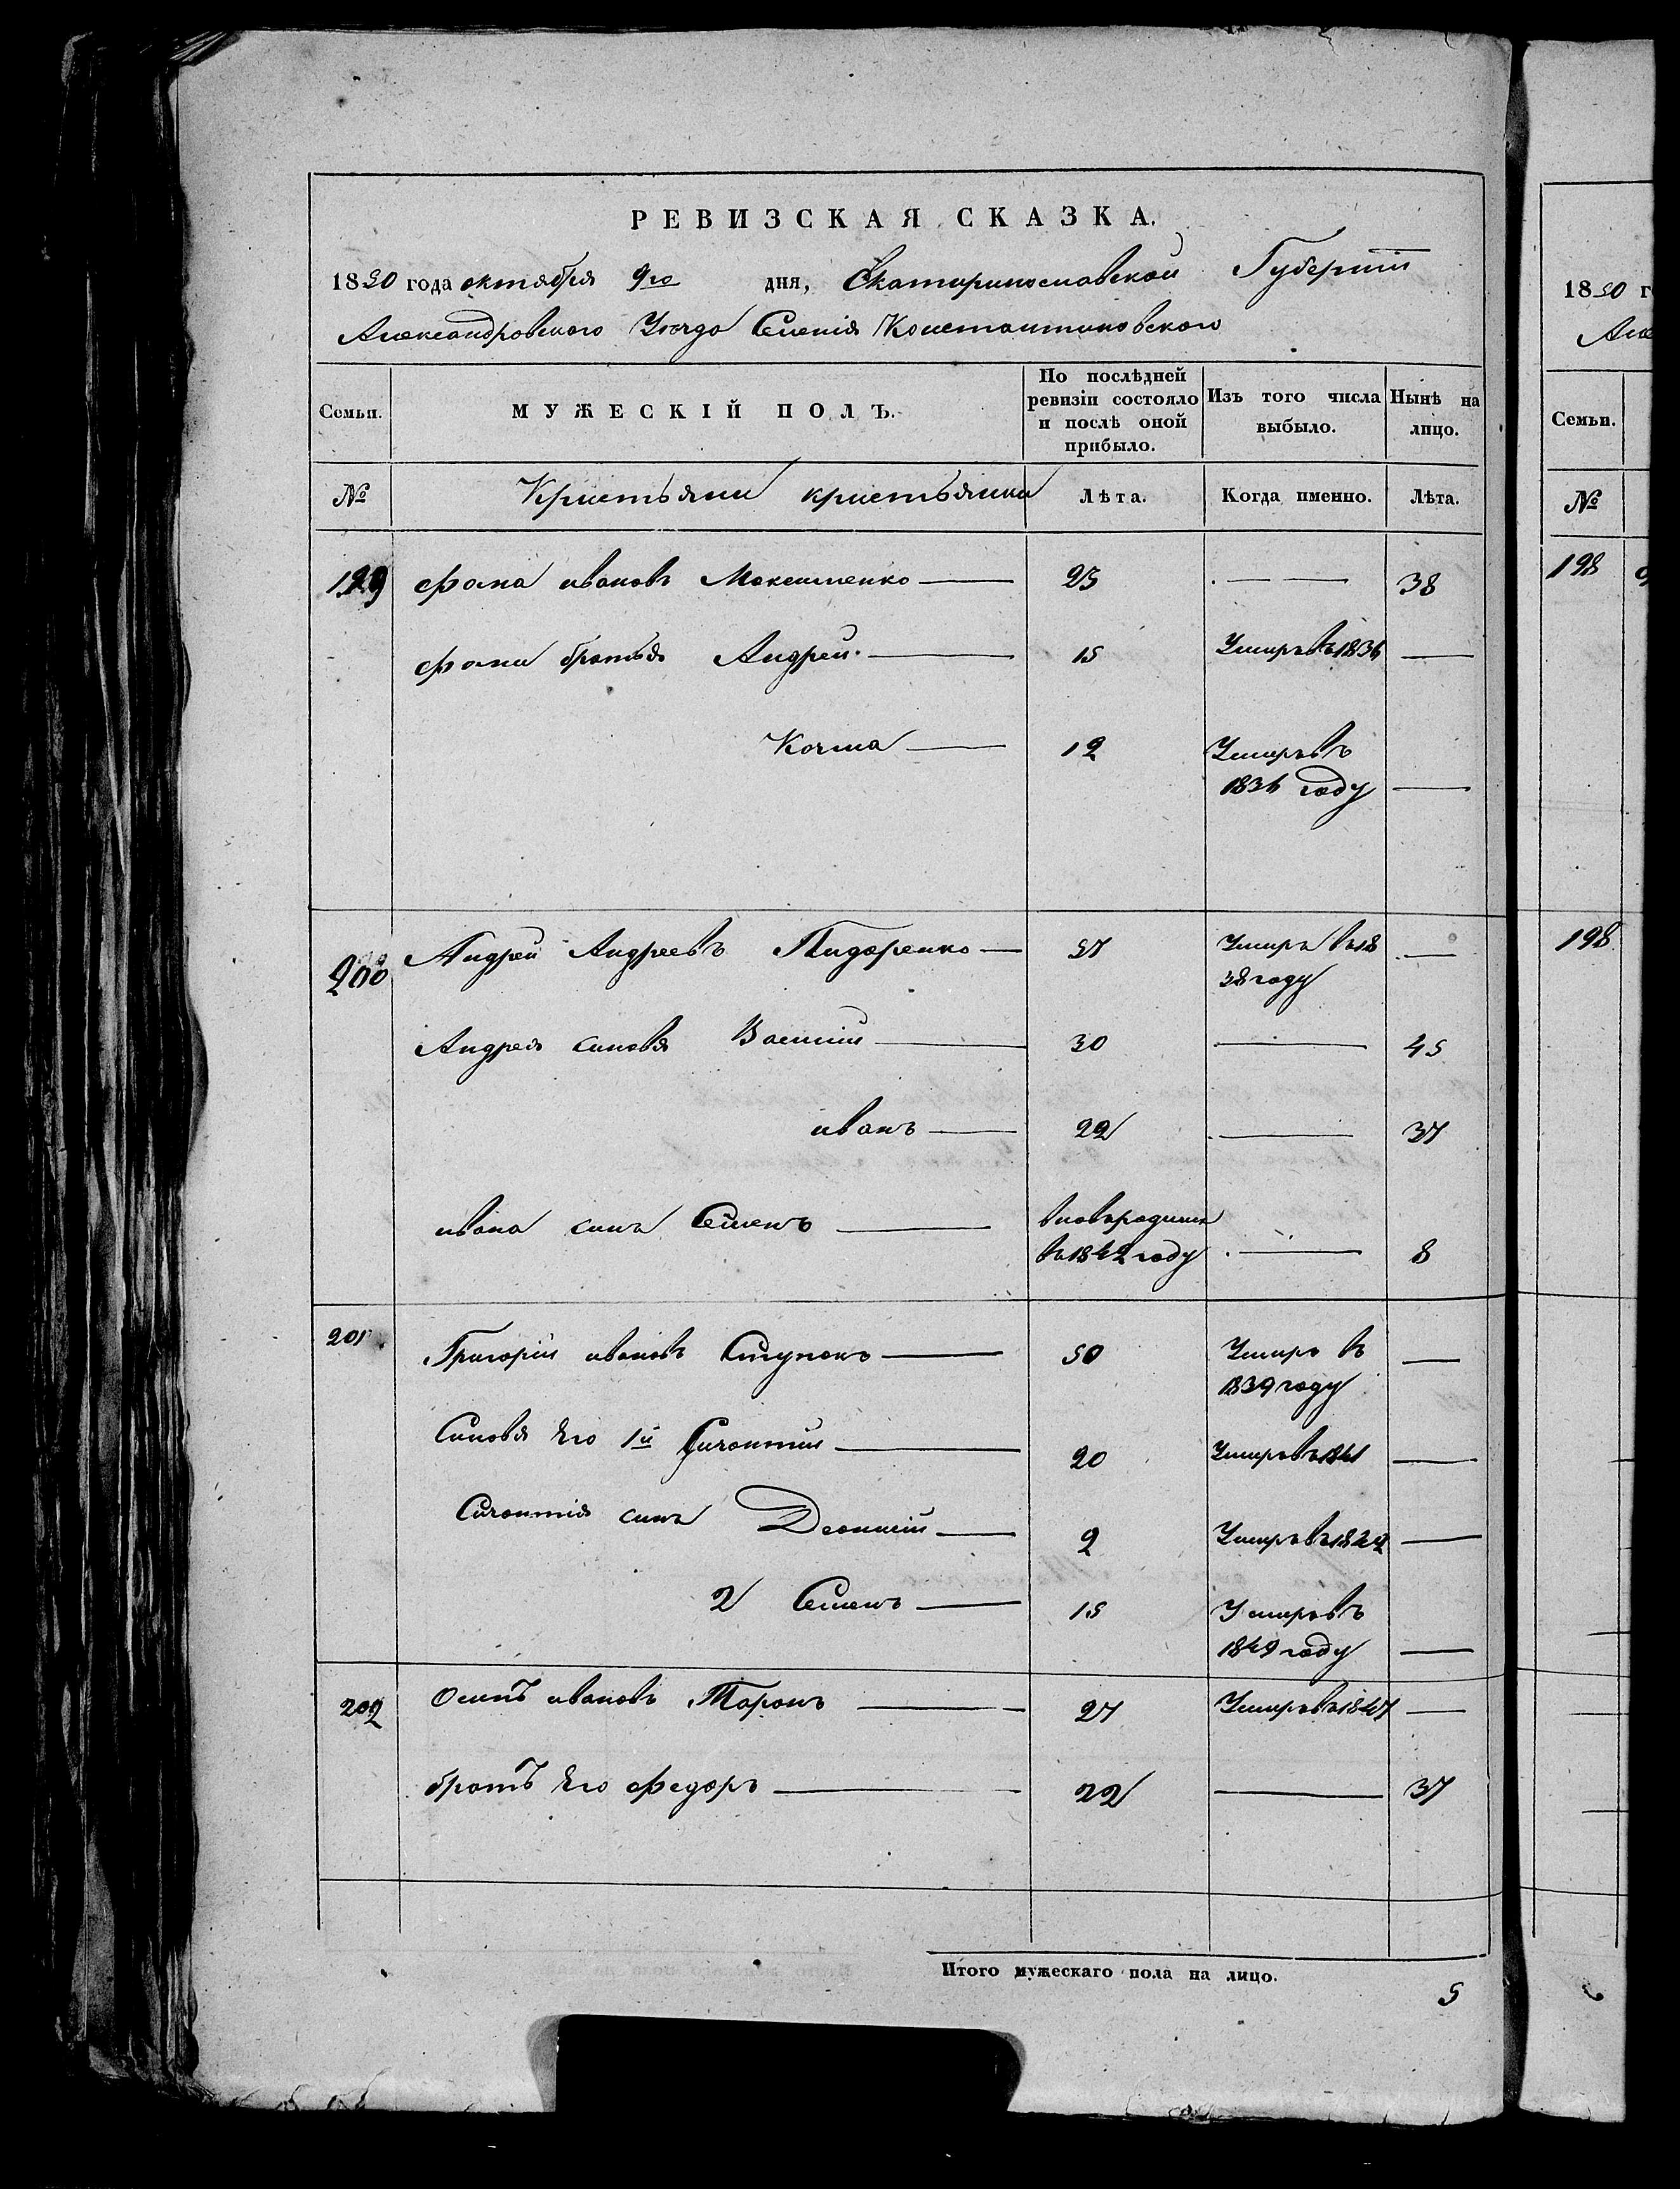 РЕВИЗСКАЯ СКАЗКА.
1850 года октября 9го дня, Екатеринославской Губернии
Александровского Уезда Селения Константиновского
Семьи. МУЖЕСКІЙ ПОЛЪ. По послѣдней ревизіи состояло и послѣ оной прибыло. Изъ того числа выбыло. Нынѣ на лицо.
№ Кристьяни Лѣта. Когда именно. Лѣта.
199 Фома ивановъ Максименко 23 38
Фоми братья Андрей 15 Умиръ въ 1836
Козма 12 Умиръ въ
1836 году
200 Андрей Андреевъ Пидоренко 57 Умиръ въ 18
38 году
Андрея синовя Василий 30 45
иванъ 22 37
ивана синъ Семенъ вновь
в 1842 году 8
201 Григорий ивановъ Ступакъ 50 Умиръ въ
1839 году
Синовя Его 1й 20 Умиръ въ 1841
синъ 2 Умиръ въ
2 Семенъ 15 Умиръ въ
1849 году
202 Осипъ ивановъ Таранъ 27 Умиръ въ 1847
братъ Его Федоръ 22 37
Итого мужескаго пола на лицо.
5
1850 г
Але
Семьи.
№
198
198